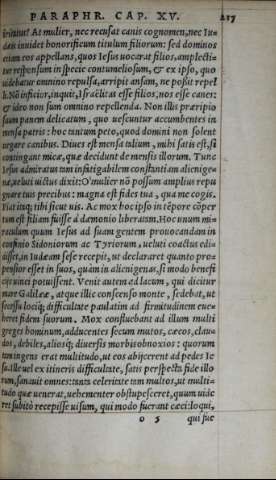 PARAPHR. CAP. XV. 217
At mulier, nec recusat canis cognomen, nec Iu-
dæis inuidet honorificum titulum filiorum: sed dominos
etiam eos appellans, quos Iesus uocarat filios, amplecti-
tur responsum in specie contumeliosum, & ex ipso, quo
uidebatur omnino repulsa, arripit ansam, ne possit repel
li. Nō inficior, inquit, Israëlitas esse filios, nos esse canes:
& ideo non sum omnino repellenda. Non illis præripio
suum panem delicatum, quo uescuntur accumbentes in
mensa patris: hoc tantum peto, quod domini non solent
negare canibus. Diues est mensa talium, mihi satis est, si
contingant micæ, quæ decidunt de mensis illorum. Tunc
Iesus admiratus tam infatigabilem constantiam alienige-
næ, ueluti uictus dixit: O mulier nō possum amplius repu
gnare tuis precibus: magna est fides tua, qua me cogis.
Ita fiat tibi sicut uis. Ac mox hoc ipso in tēpore cōper
tum est filiam fuisse à dæmonio liberatam. Hoc unum mi-
raculum quum Iesus ad suam gentem prouocandam in
confinio Sidoniorum ac Tyriorum, ueluti coactus edi-
disset, in Iudæam sese recepit, ut declararet quanto pro-
pensior esset in suos, quàm in alienigenas, si modo benefi
cijs uinci potuissent. Venit autem ad lacum, qui dicitur
mare Galileæ, atque illic conscenso monte, sedebat, ut
consensu loci difficultate paulatim ad firmitudinem eue-
heret fidem suorum. Mox confluebant ad illum multi
greges hominum, adducentes secum mutos, cæcos, clau-
dos, debiles, aliosq́; diuersis morbis obnoxios: quorum
tam ingens erat multitudo, ut eos abijcerent ad pedes Ie
su. Ille uel ex itineris difficultate, satis perspecta fide illo
rum, sanauit omnes: tanta celeritate tam multos, ut multi-
tudo quæ uenerat, uehementer obstupesceret, quum uide
ret subitò recepisse uisum, qui modo fuerant cæci: loqui,
o 5 qui fue